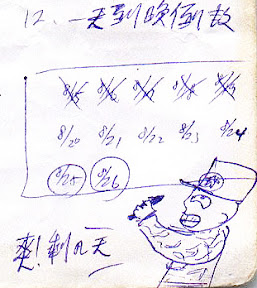 12、一天到晚倒数
8/15 8/16 8/17 8/18 8/19
8/20 8/21 8/22 8/23 8/24
8/25 8/26
爽！剩几天